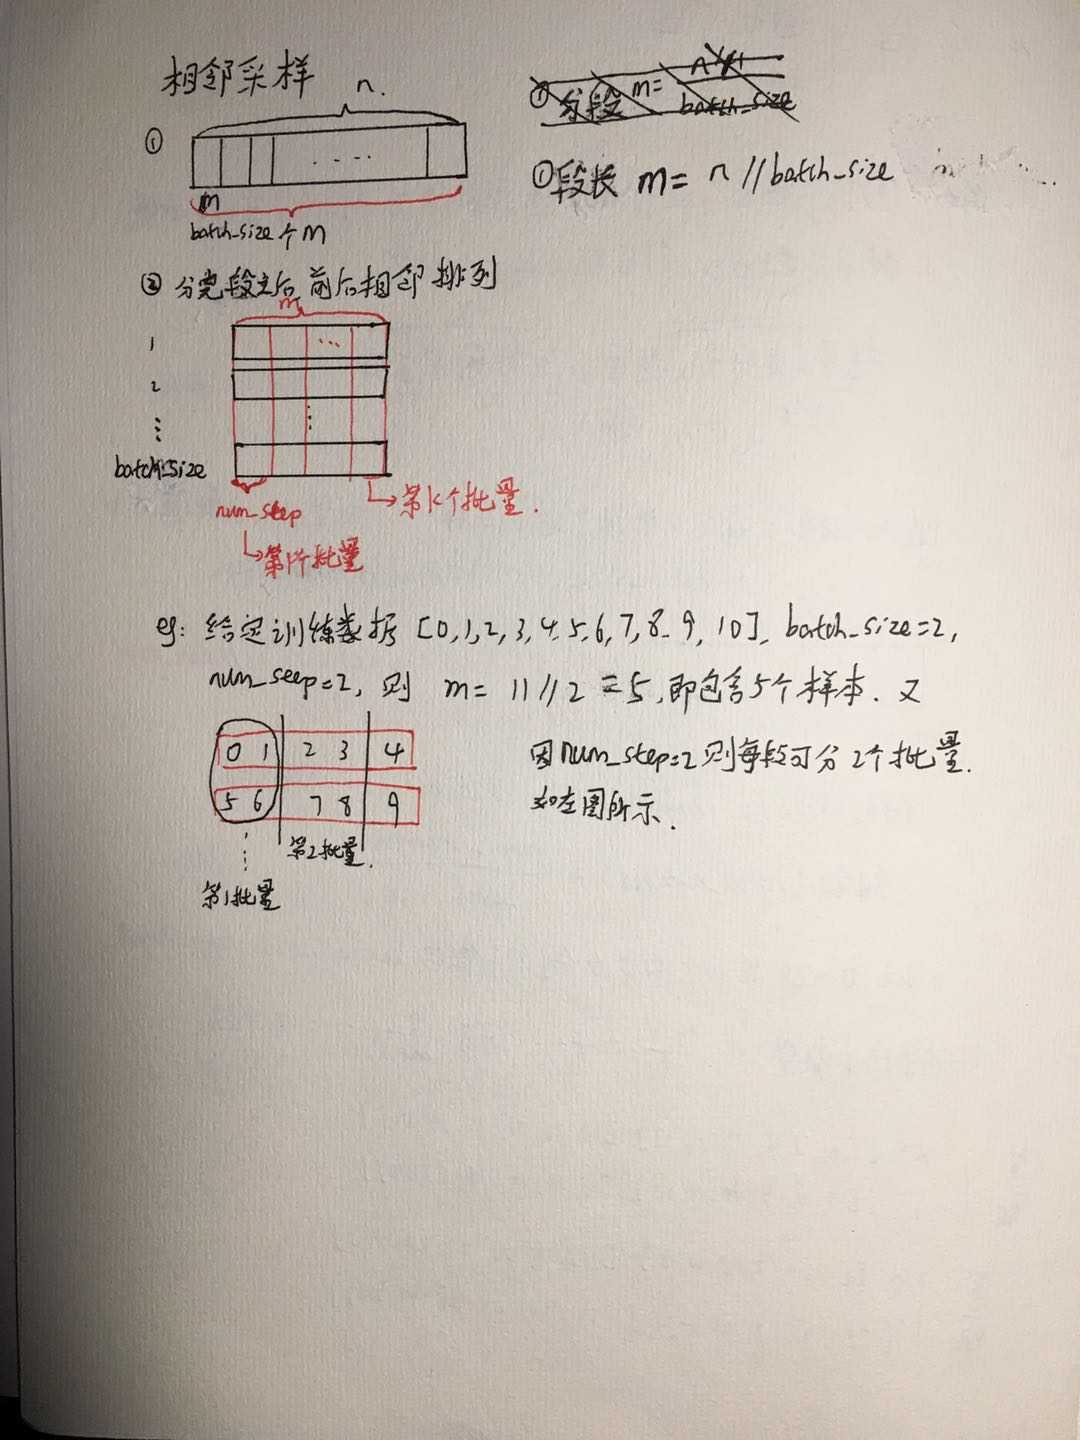 相邻采样
n.
①
m
batch_size个m
①段长 m= n//batch_size
② 分完段之后 前后相邻 排列
m
1
2
batch_size
num_step
第k个批量.
第1个批量
eg: 给定训练数据 [0,1,2,3,4,5,6,7,8,9,10], batch_size=2,
num_seep=2, 则 m= 11//2 =5,即包含5个样本. 又
因num_step=2则每段可分 2个批量.
如左图所示.
0 1 2 3 4
5 6 7 8 9
第2批量.
第1批量